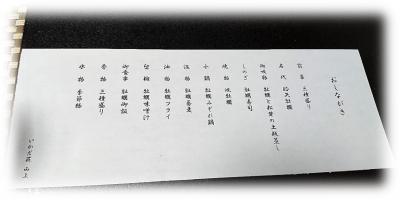 おしながき
前菜 三種盛り
名代 焔矢牡蠣
御吸物 牡蠣と松茸の土瓶蒸し
しのぎ 牡蠣寿司
焼物 波牡蠣
小鍋 牡蠣みぞれ鍋
温物 牡蠣蕎麦
油物 牡蠣フライ
留椀 牡蠣味噌汁
御食事 牡蠣御飯
香物 三種盛り
水物 季節物
いかだ荘 山上